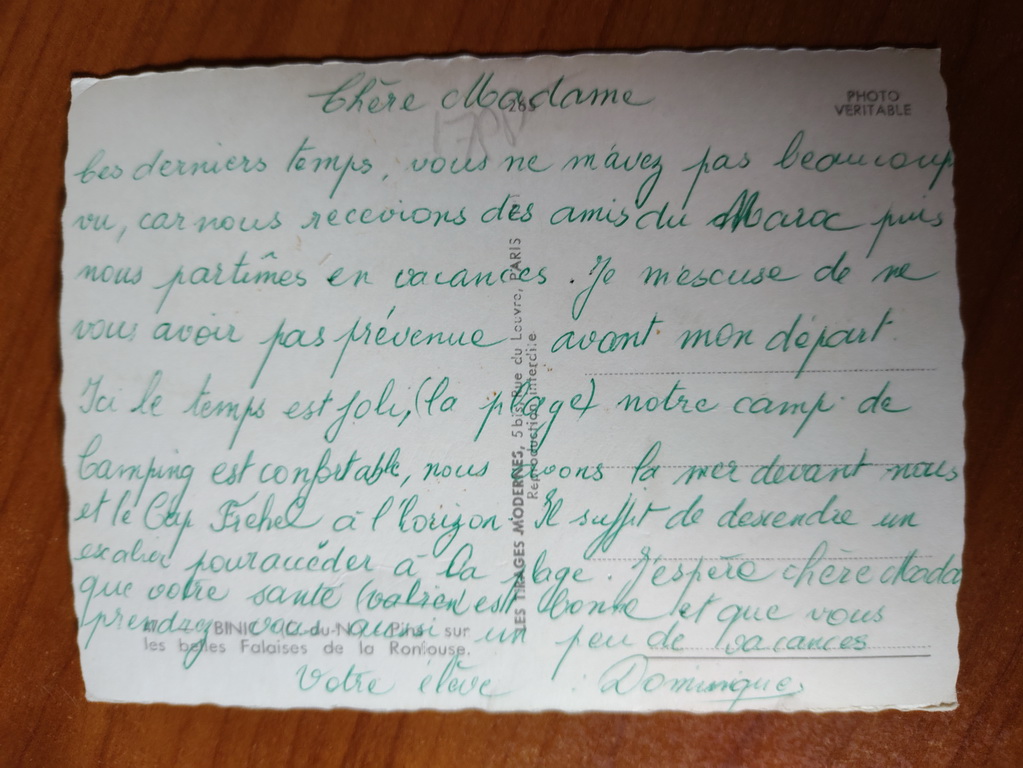 Chère Madame
265
PHOTO
VERITABLE
Ces derniers temps, vous ne m'avez pas beaucoup
vu, car nous recevions des amis du Maroc puis
nous partîmes en vacances. Je m'escuse de ne
vous avoir pas prévenue avant mon départ.
Ici le temps est joli, (la plage) notre camp de
Camping est confortable, nous avons la mer devant nous
et le Cap Frehel à l'horizon. Il suffit de descendre un
escalier pour accéder à la plage. J'espère chère Mada
que votre santé est bonne et que vous
prendrez vous aussi un peu de vacances
Votre élève Dominique
LES TIRAGES MODERNES, 5 bis, Rue du Louvre, PARIS
Reproduction interdite
BINIC (C.-du-N.) Pins sur
les belles Falaises de la Ronfouse.